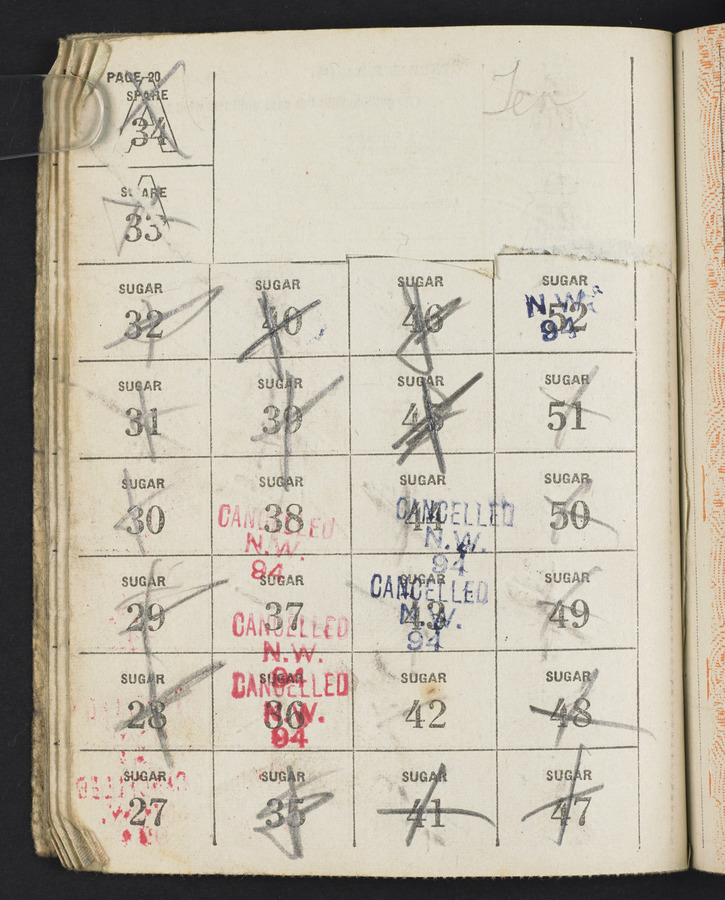 PAGE 20
SPARE
A
34
Tea
SPARE
A
33
SUGAR SUGAR SUGAR SUGAR
32 40 46 52
N.W.
94
SUGAR SUGAR SUGAR SUGAR
31 39 45 51
SUGAR SUGAR SUGAR SUGAR
30 38 44 50
CANCELLED CANCELLED
N.W. N.W.
84 94
SUGAR SUGAR SUGAR SUGAR
29 37 43 49
CANCELLED CANCELLED
N.W. N.W.
94 94
SUGAR SUGAR SUGAR SUGAR
28 36 42 48
CANCELLED
N.W.
94
SUGAR SUGAR SUGAR SUGAR
27 35 41 47